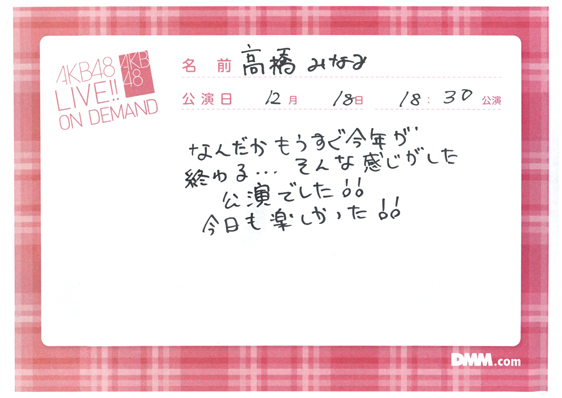 AKB48
LIVE!!
ON DEMAND
AKB
48
名前 高橋みなみ
公演日 12月 18日 18:30 公演
なんだか もうすぐ今年が
終わる... そんな感じがした
公演でした!!
今日も楽しかった!!
DMM.com